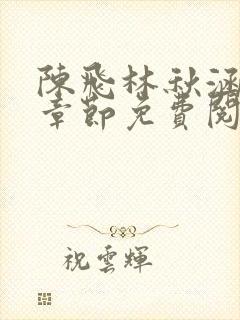 陳飛林秋涵
章節免費閱
祝雲輝